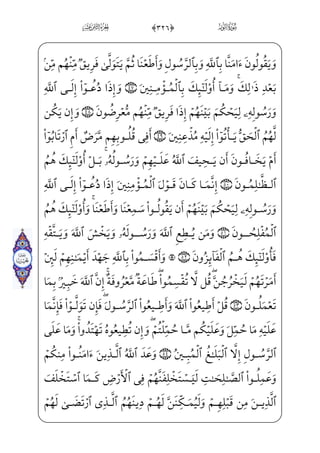 سُورَةُ النُّورِ ﴿٣٢٦﴾ الجُزْءُ الثَّامِنَ عَشَرَ
وَيَقُولُونَ ءَامَنَّا بِٱللَّهِ وَبِٱلرَّسُولِ وَأَطَعْنَا ثُمَّ يَتَوَلَّىٰ فَرِيقٌ مِّنْهُم مِّنۢ
بَعْدِ ذَٰلِكَ ۚ وَمَآ أُو۟لَـٰٓئِكَ بِٱلْمُؤْمِنِينَ ﴿٤٧﴾ وَإِذَا دُعُوٓا۟ إِلَى ٱللَّهِ
وَرَسُولِهِۦ لِيَحْكُمَ بَيْنَهُمْ إِذَا فَرِيقٌ مِّنْهُم مُّعْرِضُونَ ﴿٤٨﴾ وَإِن يَكُن
لَّهُمُ ٱلْحَقُّ يَأْتُوٓا۟ إِلَيْهِ مُذْعِنِينَ ﴿٤٩﴾ أَفِى قُلُوبِهِم مَّرَضٌ أَمِ ٱرْتَابُوٓا۟
أَمْ يَخَافُونَ أَن يَحِيفَ ٱللَّهُ عَلَيْهِمْ وَرَسُولُهُۥ ۚ بَلْ أُو۟لَـٰٓئِكَ هُمُ
ٱلظَّـٰلِمُونَ ﴿٥٠﴾ إِنَّمَا كَانَ قَوْلَ ٱلْمُؤْمِنِينَ إِذَا دُعُوٓا۟ إِلَى ٱللَّهِ
وَرَسُولِهِۦ لِيَحْكُمَ بَيْنَهُمْ أَن يَقُولُوا۟ سَمِعْنَا وَأَطَعْنَا ۚ وَأُو۟لَـٰٓئِكَ هُمُ
ٱلْمُفْلِحُونَ ﴿٥١﴾ وَمَن يُطِعِ ٱللَّهَ وَرَسُولَهُۥ وَيَخْشَ ٱللَّهَ وَيَتَّقْهِ
فَأُو۟لَـٰٓئِكَ هُمُ ٱلْفَآئِزُونَ ﴿٥٢﴾ ۞ وَأَقْسَمُوا۟ بِٱللَّهِ جَهْدَ أَيْمَـٰنِهِمْ لَئِنْ
أَمَرْتَهُمْ لَيَخْرُجُنَّ ۖ قُل لَّا تُقْسِمُوا۟ ۖ طَاعَةٌ مَّعْرُوفَةٌ ۚ إِنَّ ٱللَّهَ خَبِيرٌۢ بِمَا
تَعْمَلُونَ ﴿٥٣﴾ قُلْ أَطِيعُوا۟ ٱللَّهَ وَأَطِيعُوا۟ ٱلرَّسُولَ ۖ فَإِن تَوَلَّوْا۟ فَإِنَّمَا
عَلَيْهِ مَا حُمِّلَ وَعَلَيْكُم مَّا حُمِّلْتُمْ ۖ وَإِن تُطِيعُوهُ تَهْتَدُوا۟ ۚ وَمَا عَلَى
ٱلرَّسُولِ إِلَّا ٱلْبَلَـٰغُ ٱلْمُبِينُ ﴿٥٤﴾ وَعَدَ ٱللَّهُ ٱلَّذِينَ ءَامَنُوا۟ مِنكُمْ
وَعَمِلُوا۟ ٱلصَّـٰلِحَـٰتِ لَيَسْتَخْلِفَنَّهُمْ فِى ٱلْأَرْضِ كَمَا ٱسْتَخْلَفَ
ٱلَّذِينَ مِن قَبْلِهِمْ وَلَيُمَكِّنَنَّ لَهُمْ دِينَهُمُ ٱلَّذِى ٱرْتَضَىٰ لَهُمْ